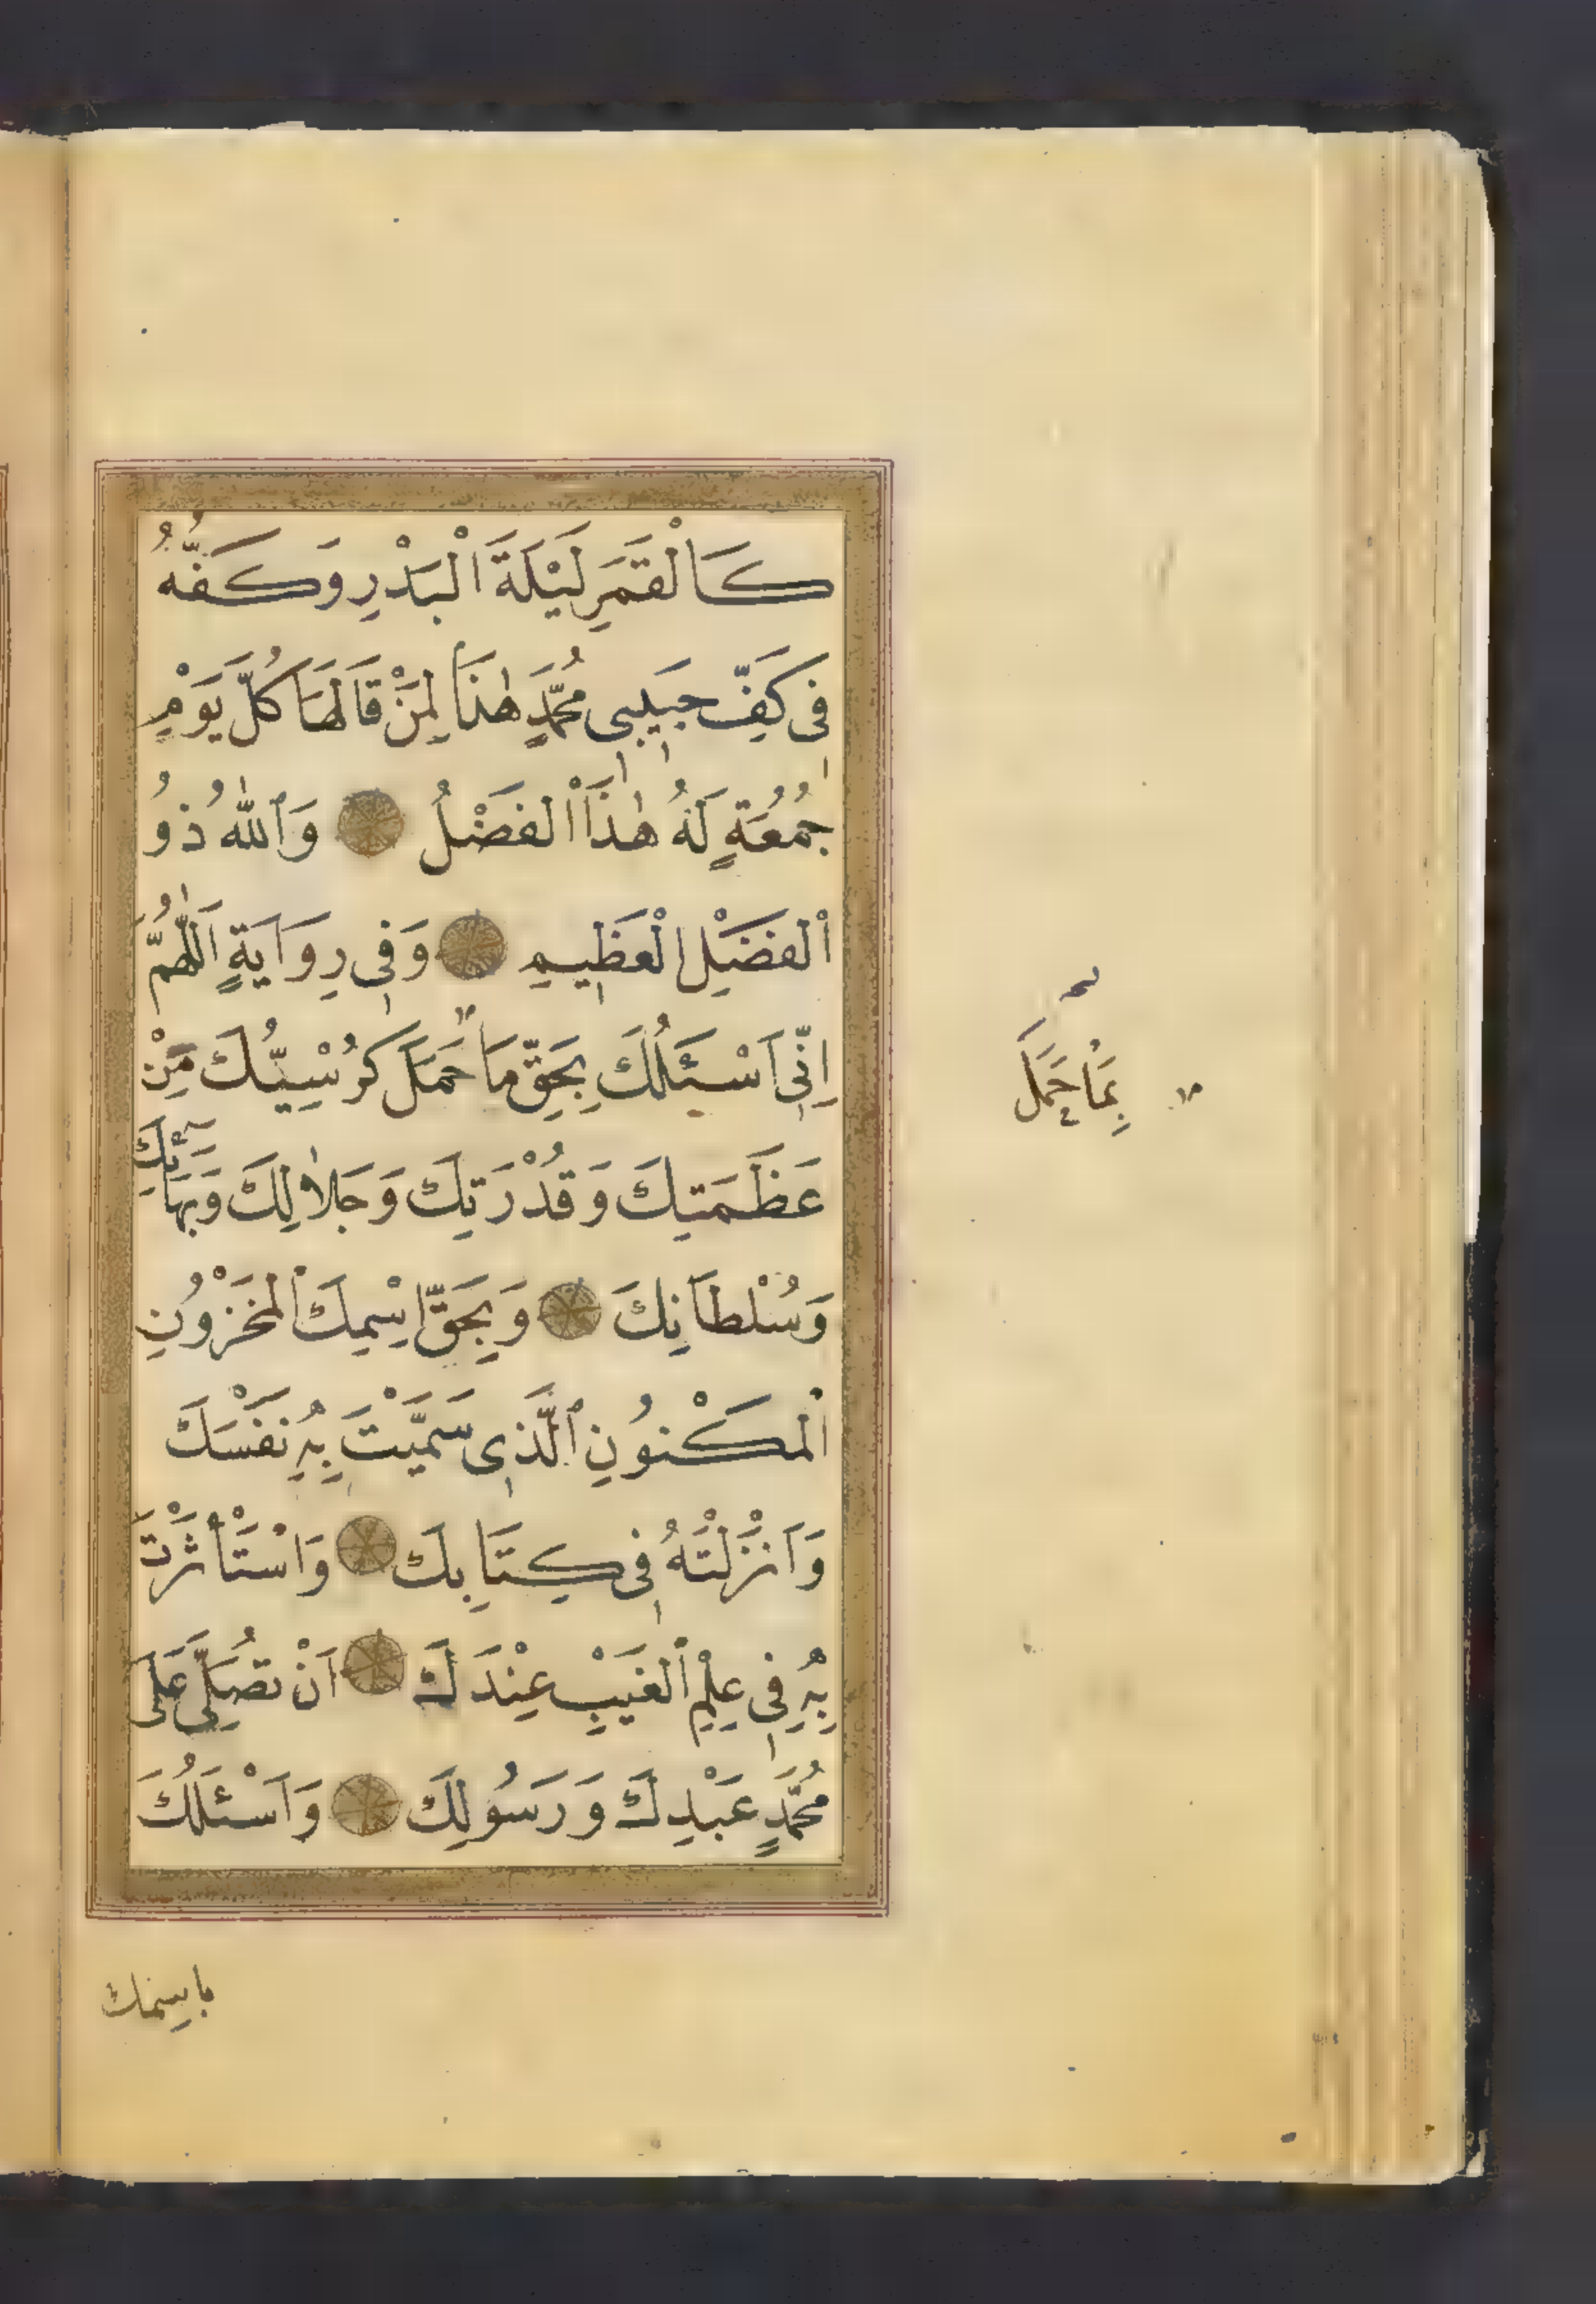 كَالْقَمَرِ لَيْلَةَ الْبَدْرِ وَكَفُّهُ
فِي كَفِّ حَبِيبِي مُحَمَّدٍ هٰذَا لِمَنْ قَالَهَا كُلَّ يَوْمِ
جُمُعَةٍ لَهُ هٰذَا الْفَضْلُ وَاللّٰهُ ذُو
الْفَضْلِ الْعَظِيمِ وَفِي رِوَايَةٍ اَللّٰهُمَّ
اِنِّي اَسْئَلُكَ بِحَقِّ مَا حَمَلَ كُرْسِيُّكَ مِنْ
عَظَمَتِكَ وَقُدْرَتِكَ وَجَلَالِكَ وَبَهَائِكَ
وَسُلْطَانِكَ وَبِحَقِّ اسْمِكَ الْمَخْزُونِ
الْمَكْنُونِ الَّذِي سَمَّيْتَ بِهِ نَفْسَكَ
وَاَنْزَلْتَهُ فِي كِتَابِكَ وَاسْتَأْثَرْتَ
بِهِ فِي عِلْمِ الْغَيْبِ عِنْدَكَ اَنْ تُصَلِّيَ عَلَى
مُحَمَّدٍ عَبْدِكَ وَرَسُولِكَ وَاَسْئَلُكَ
بِمَا حَمَلَ
باسمك